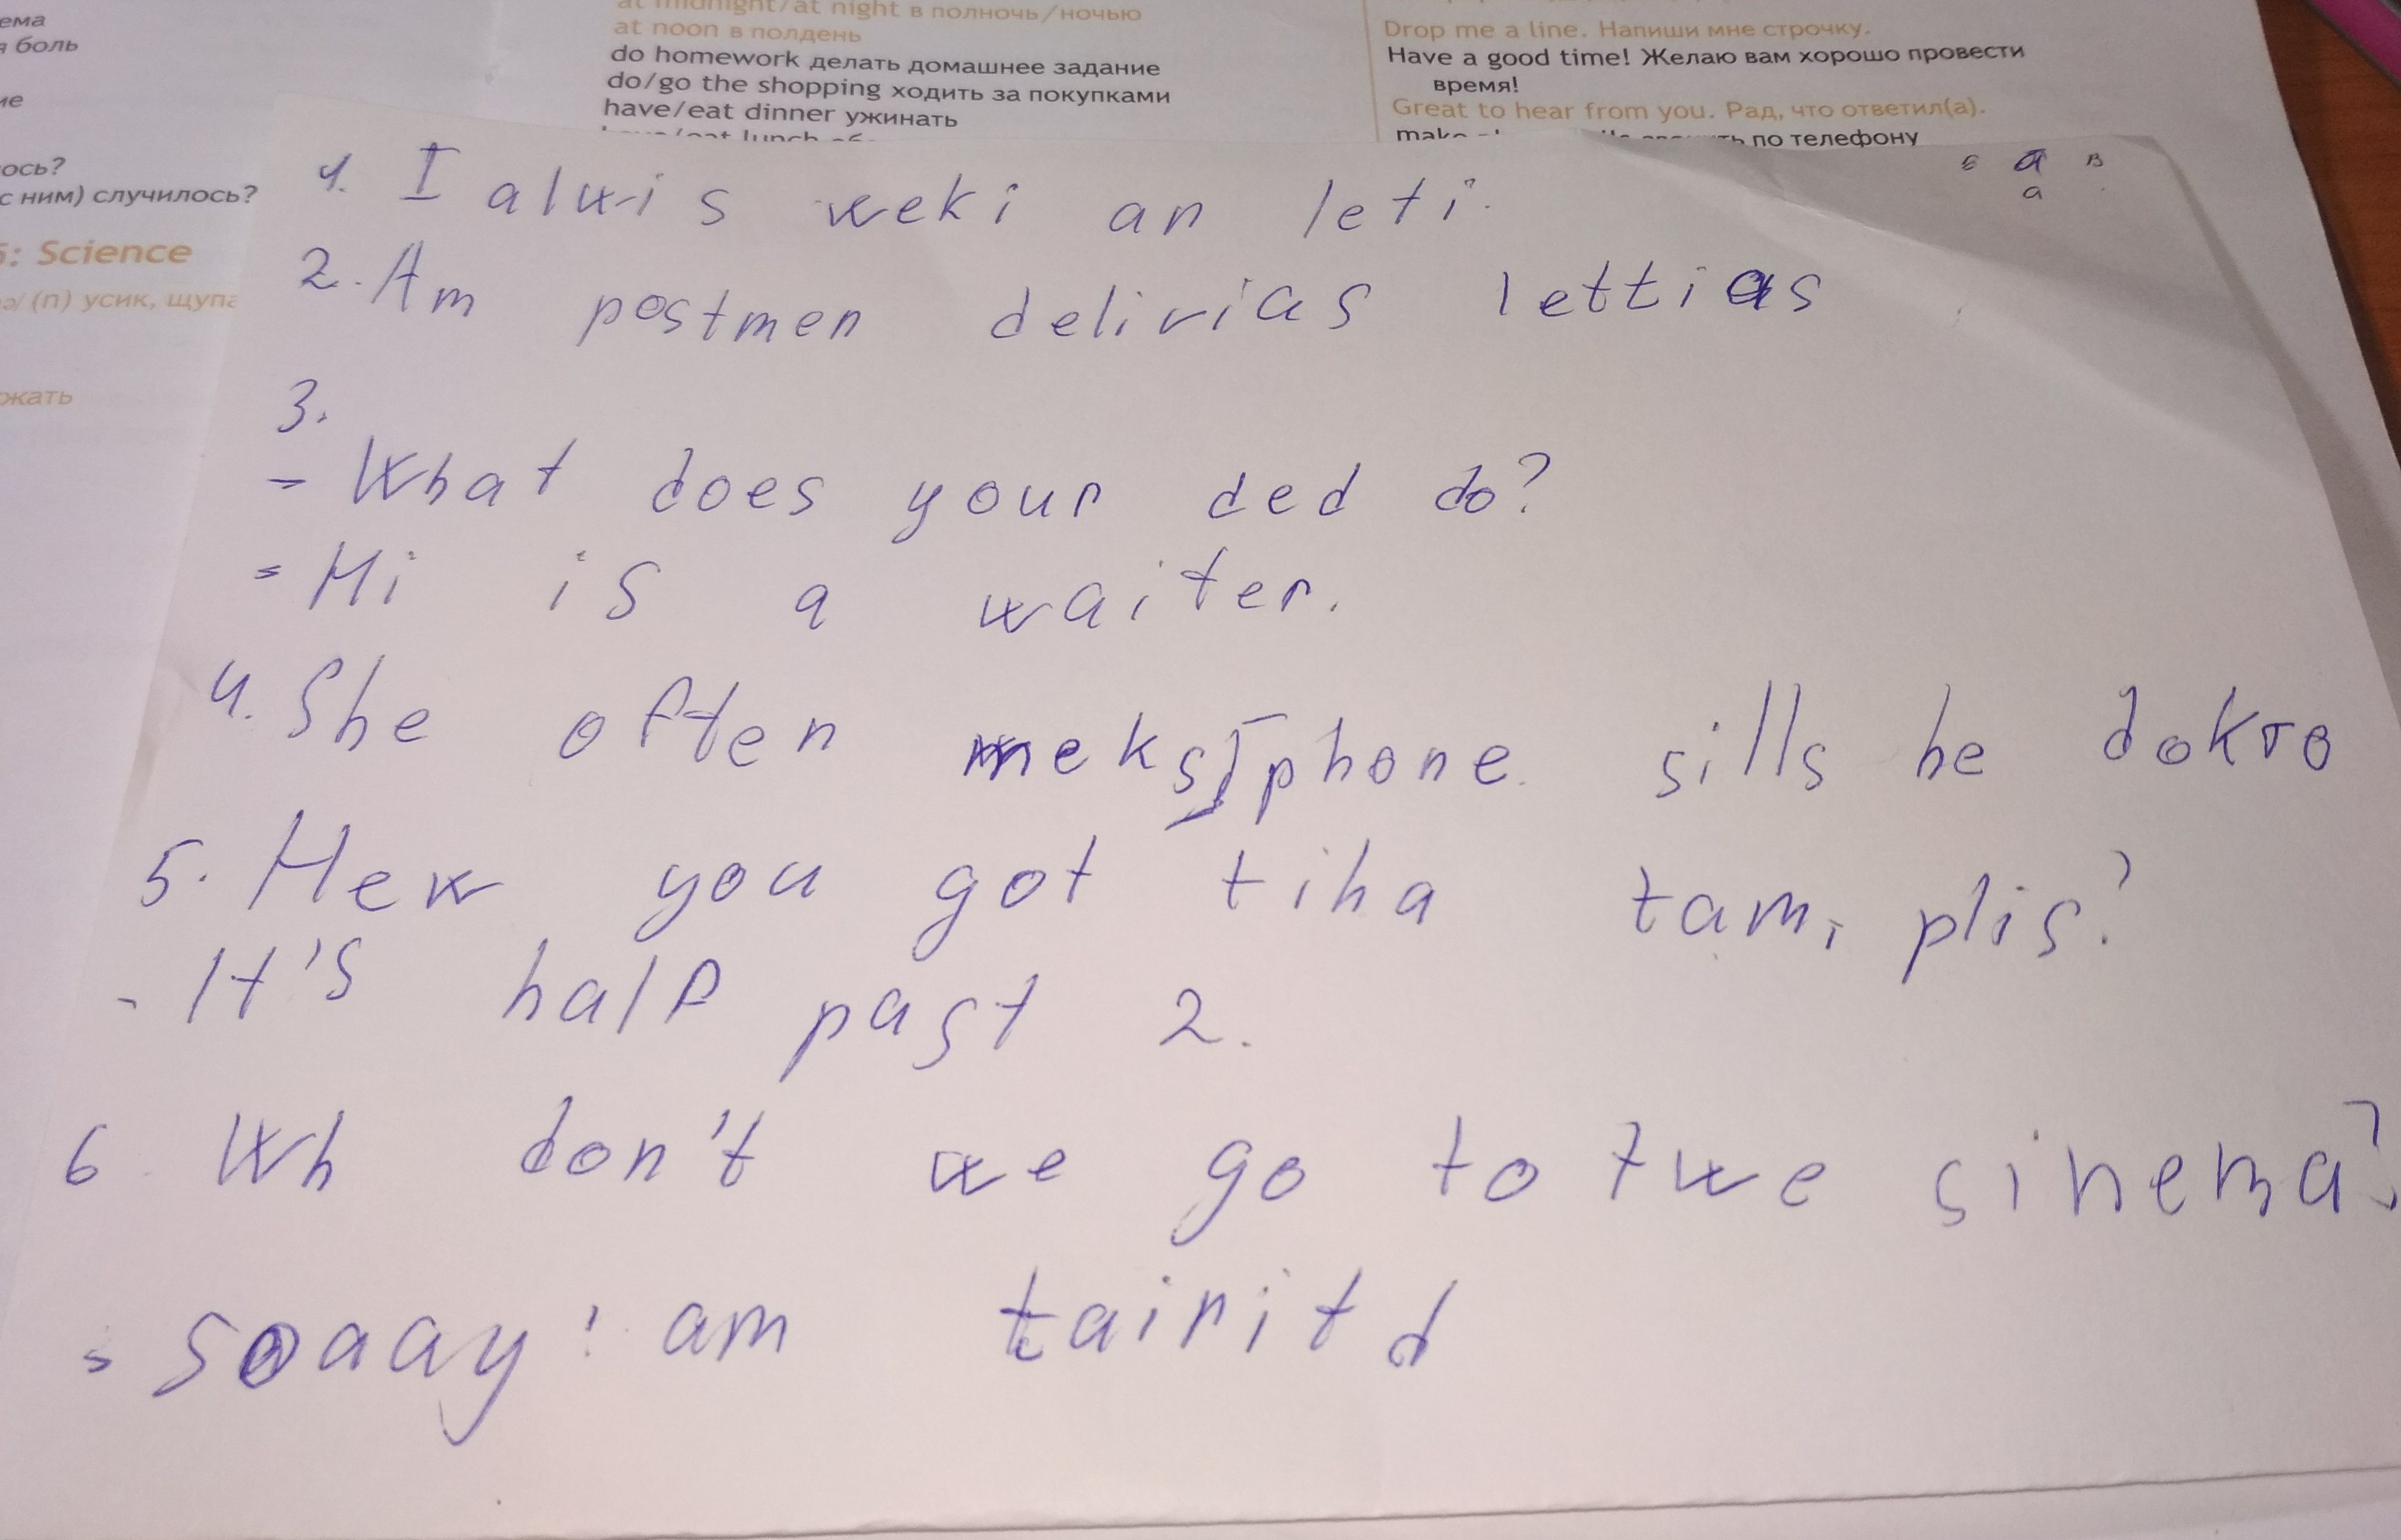 ема
я боль
ие
ось?
с ним) случилось?
5: Science
(n) усик, щупа
жать
at midnight/at night в полночь/ночью
at noon в полдень
do homework делать домашнее задание
do/go the shopping ходить за покупками
have/eat dinner ужинать
have/eat lunch об
Drop me a line. Напиши мне строчку.
Have a good time! Желаю вам хорошо провести
время!
Great to hear from you. Рад, что ответил(а).
make по телефону
Б а В
а
1. I alwis weki an leti.
2. Am postmen delivias lettias
3.
- What does your ded do?
- Hi is a waiter.
4. She often meks phone sills he dokто
5. Hew you got tiha tam, plis?
- It's half past 2.
6. Wh don't we go to twe sinema?
- soaay! am tairitd